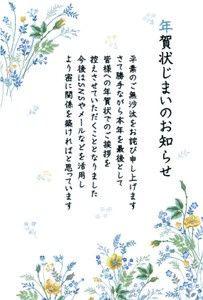 年賀状じまいのお知らせ
平素のご無沙汰をお詫び申し上げます
さて勝手ながら本年を最後として
皆様への年賀状でのご挨拶を
控えさせていただくこととなりました
今後はSNSやメールなどを活用し
より密に関係を築ければと思っています